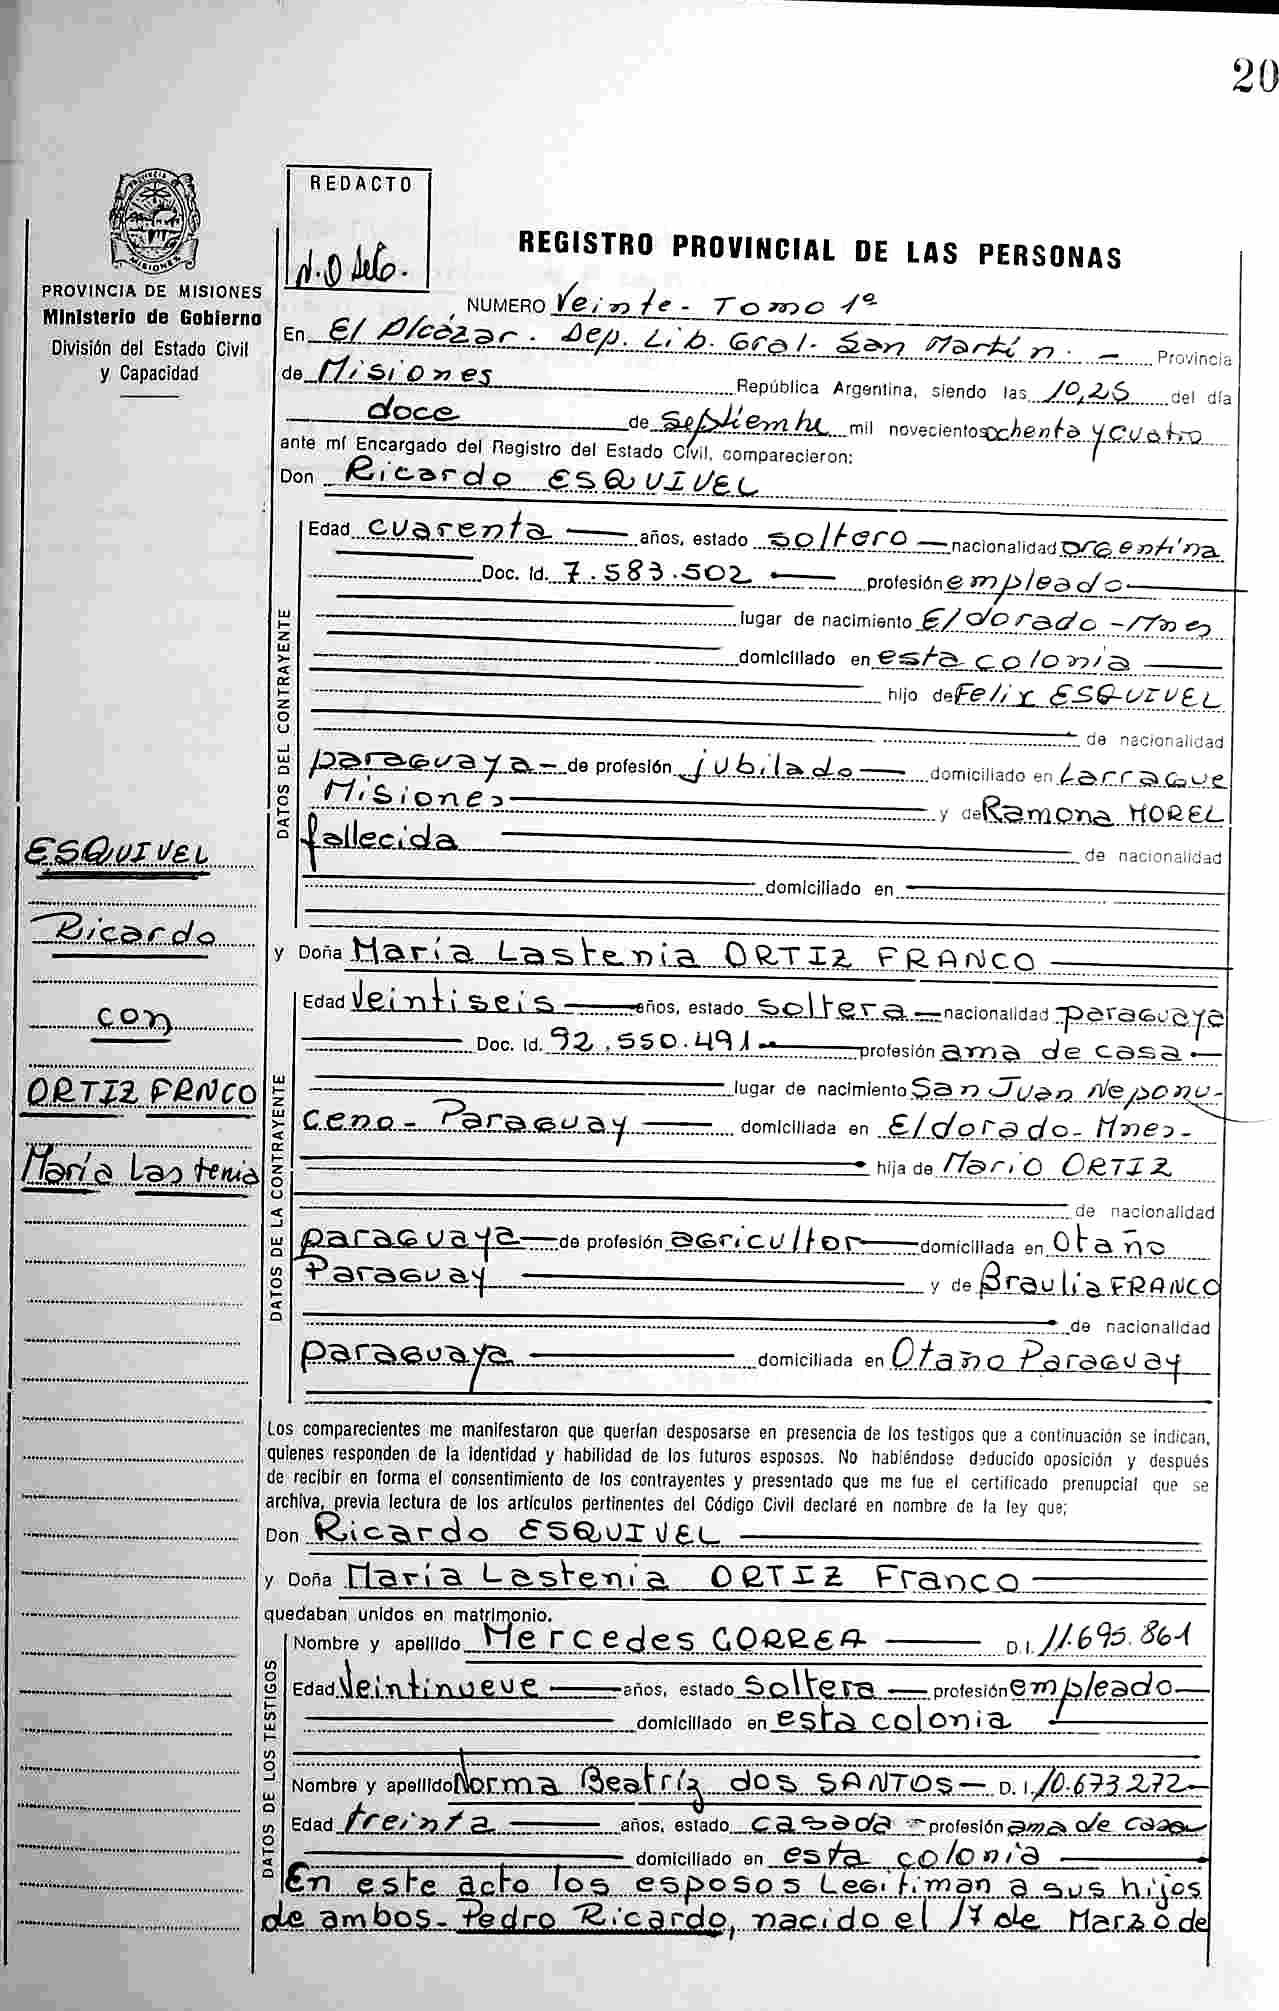 20
REDACTO
PROVINCIA DE MISIONES
Ministerio de Gobierno
División del Estado Civil
y Capacidad
REGISTRO PROVINCIAL DE LAS PERSONAS
NUMERO Veinte - Tomo 1º
En El Alcázar. Dep. Lib. Gral. San Martín. - Provincia
de Misiones República Argentina, siendo las 10,25 del día
doce de septiembre mil novecientos ochenta y cuatro
ante mí Encargado del Registro del Estado Civil, comparecieron:
Don Ricardo ESQUIVEL
DATOS DEL CONTRAYENTE
Edad cuarenta años, estado soltero nacionalidad argentina
Doc. Id. 7.583.502 profesión empleado
lugar de nacimiento Eldorado - Mnes
domiciliado en esta colonia
hijo de Felix ESQUIVEL
de nacionalidad
paraguaya - de profesión jubilado domiciliado en Larrague
Misiones y de Ramona MOREL
fallecida de nacionalidad
domiciliado en
ESQUIVEL
Ricardo
con
ORTIZ FRNCO
María Lastenia
y Doña María Lastenia ORTIZ FRANCO
DATOS DE LA CONTRAYENTE
Edad Veintiseis años, estado soltera nacionalidad paraguaya
Doc. Id. 92.550.491 profesión ama de casa
lugar de nacimiento San Juan Nepomu-
ceno - Paraguay domiciliada en Eldorado - Mnes -
hija de Mario ORTIZ
de nacionalidad
paraguaya de profesión agricultor domiciliada en Otaño
Paraguay y de Braulia FRANCO
de nacionalidad
paraguaya domiciliada en Otaño Paraguay
Los comparecientes me manifestaron que querían desposarse en presencia de los testigos que a continuación se indican,
quienes responden de la identidad y habilidad de los futuros esposos. No habiéndose deducido oposición y después
de recibir en forma el consentimiento de los contrayentes y presentado que me fue el certificado prenupcial que se
archiva, previa lectura de los artículos pertinentes del Código Civil declaré en nombre de la ley que;
Don Ricardo ESQUIVEL
y Doña María Lastenia ORTIZ Franco
quedaban unidos en matrimonio.
DATOS DE LOS TESTIGOS
Nombre y apellido Mercedes CORREA D.I. 11.695.861
Edad Veintinueve años, estado Soltera profesión empleado
domiciliado en esta colonia
Nombre y apellido Norma Beatríz dos SANTOS - D.I. 10.673.272
Edad treinta años, estado casada profesión ama de casa
domiciliado en esta colonia
En este acto los esposos Legitiman a sus hijos
de ambos - Pedro Ricardo, nacido el 17 de Marzo de